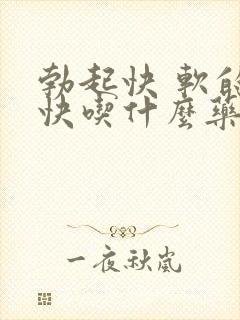 勃起快 軟的
快喫什麼藥
一夜秋嵐